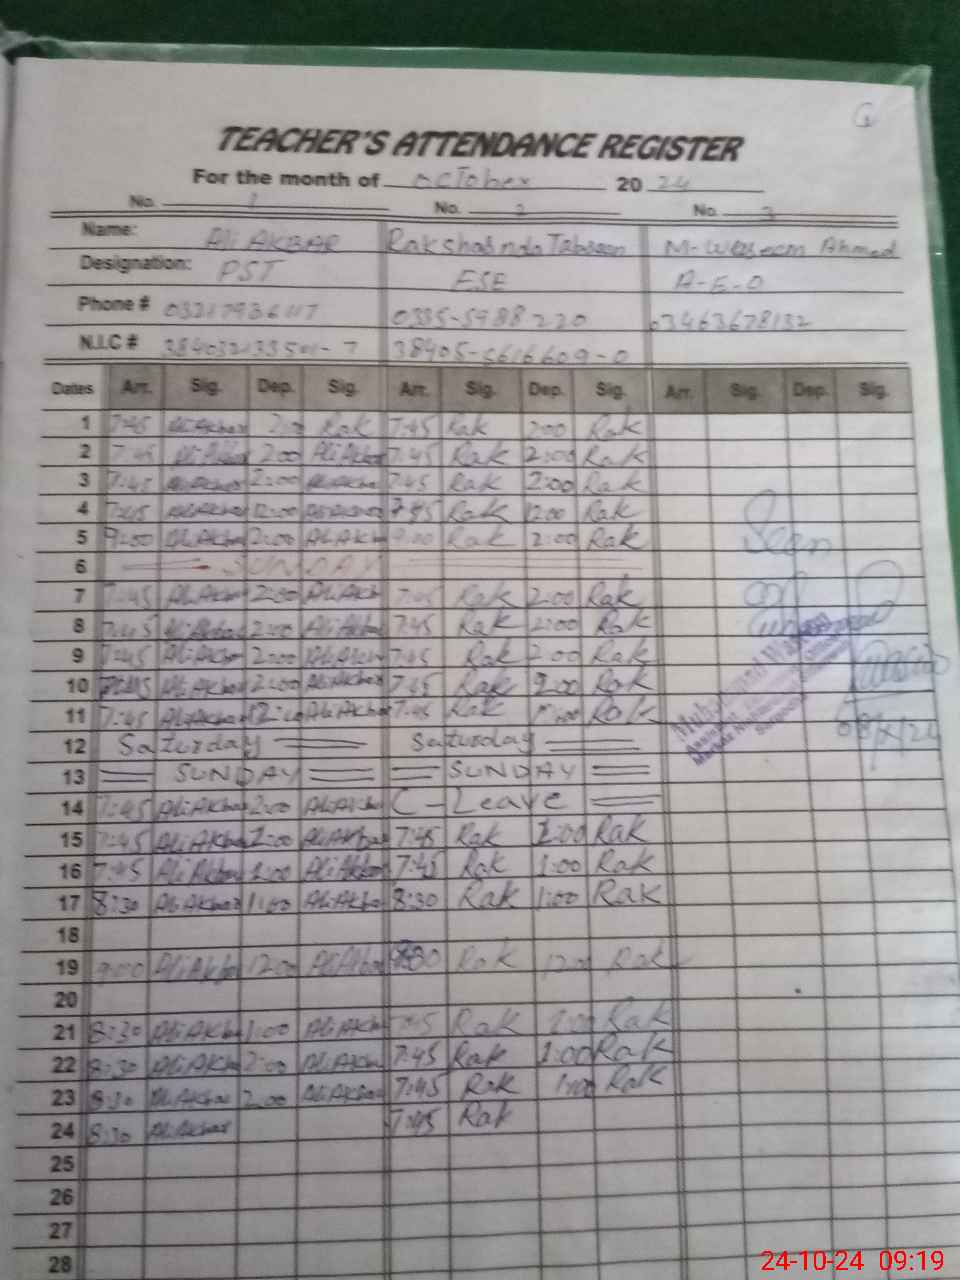 TEACHER'S ATTENDANCE REGISTER
For the month of October 2024
No. 1 No. 2 No. 3
Name: Ali AKBAR Rakshasnda Tabseen M-Waseem Ahmed
Designation: PST ESE A-E-O
Phone # 0335-5988220 03463678132
N.I.C #
Dates Arr. Sig. Dep. Sig. Arr. Sig. Dep. Sig. Arr. Sig. Dep. Sig.
1 7:45 Ali Akbar 2:00 Rak 7:45 Rak 2:00 Rak
2 7:45 Ali Akbar 2:00 Ali Akbar 7:45 Rak 2:00 Rak
3 7:45 Ali Akbar 2:00 Ali Akbar 7:45 Rak 2:00 Rak
4 7:45 Ali Akbar 12:00 7:45 Rak 1200 Rak
5 9:00 Ali Akbar 2:00 Ali Akb 9:00 Rak 2:00 Rak
Seen
6 SUNDAY
7 7:45 Ali Akb 2:00 Ali Akb 7:45 Rak 2:00 Rak
8 7:45 Ali Akbar 2:00 Ali Akbar 7:45 Rak 2:00 Rak
9 7:45 Ali Akbar 2:00 Ali Akbar 7:45 Rak 2:00 Rak
10 7:45 Ali Akbar 2:00 Ali Akbar 7:45 Rak 2:00 Rak
11 7:45 Ali Akbar 12:00 Ali Akbar 7:45 Rak Rak
Muhammad Waseem
12 Saturday Saturday
13 SUNDAY SUNDAY
14 7:45 Ali Akbar 2:00 Ali Akba C-Leave
15 7:45 Ali Akbar Ali Akbar 7:45 Rak 1:00 Rak
16 7:45 Ali Akbar 1:00 Ali Akbar 7:45 Rak 1:00 Rak
17 8:30 Ali Akbar 1:00 Ali Akba 8:30 Rak 1:00 Rak
18
19 9:00 Ali Akba 1200 Ali Akba Rak 1200 Rak
20
21 8:30 Ali Akba 1:00 Ali Akba Rak Rak
22 8:30 Ali Akba 2:00 Ali Akba 7:45 Rak 1:00 Rak
23 8:30 Ali Akbar 2:00 Ali Akbar 7:45 Rak 1:00 Rak
24 8:30 Ali Akbar 7:45 Rak
25
26
27
28
24-10-24 09:19